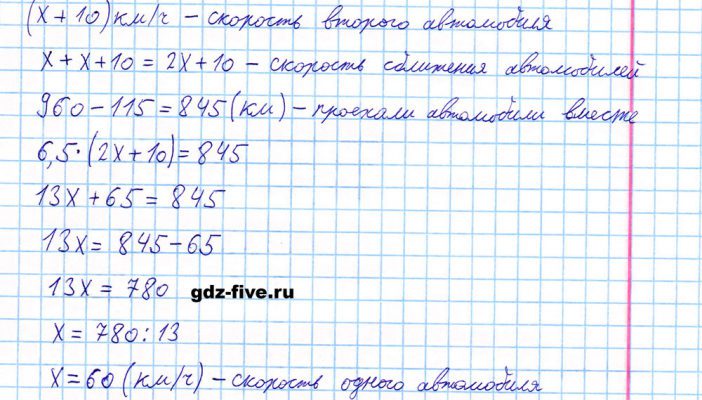 (х + 10) км/ч – скорость второго автомобиля
х + х + 10 = 2х + 10 – скорость сближения автомобилей
960 – 115 = 845 (км) – проехали автомобили вместе
6,5 · (2х + 10) = 845
13х + 65 = 845
13х = 845 – 65
13х = 780 gdz-five.ru
х = 780 : 13
х = 60 (км/ч) – скорость одного автомобиля